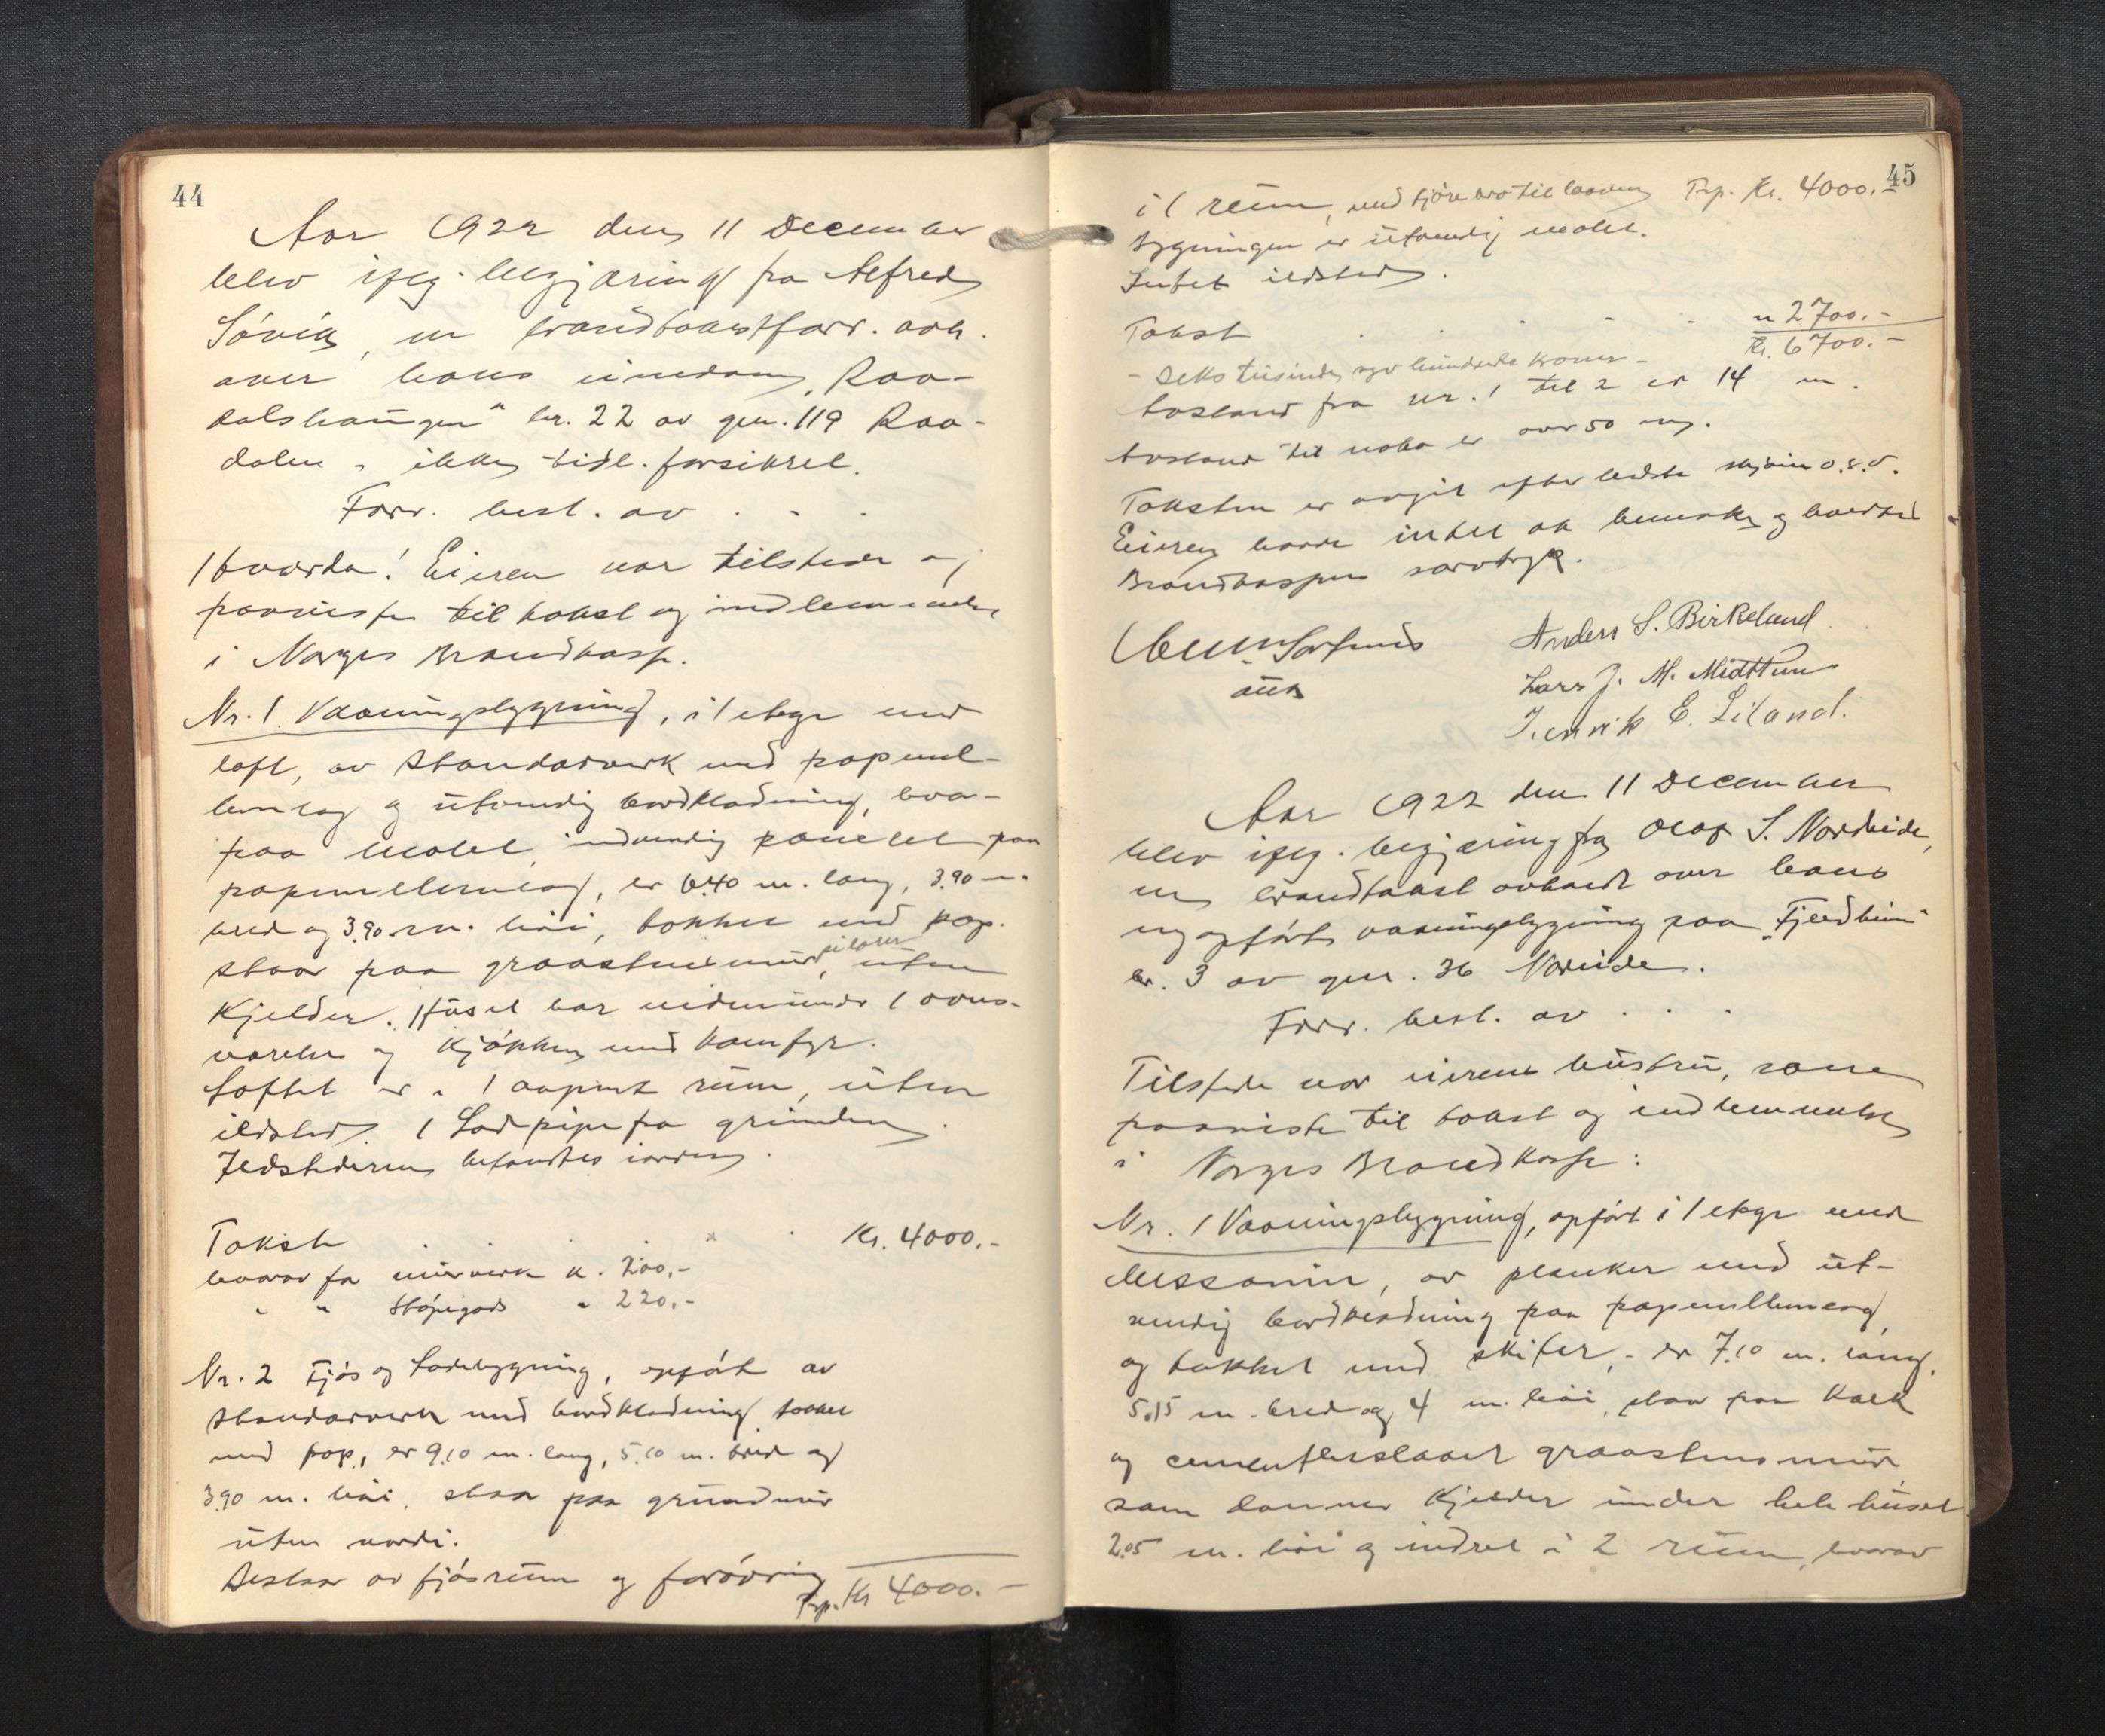 44
Aar 1922 den 11 December
blev ifølg. begjæring fra Alfred
Søvik, en brandtakstforr. avh.
over hans eiendom, „Raa-
dalshaugen" br. 22 av gnr. 119 Raa-
dalen, ikke tidl. forsikret.
Forr. best. av . . .
Hvorda! Eieren var tilstede og
paaviste til takst og indlemmelse
i Norges Brandkasse.
Nr. 1 Vaaningsbygning, i 1 etage med
loft, av standarverk med papmel-
lemlag og utvendig bordklædning, hva-
paa malet, indvendig panelet paa
papmellemlag, er 6.40 m. lang, 3.90 m.
bred og 3.90 m. høi, tækket med pap.
staar paa graastensmur, pilarer uten
Kjelder. Huset har nedenunder 1 ovns-
værelse og kjøkken med komfyr.
Loftet er i 1 aapent rum, uten
ildsted. 1 Lodpipe fra grunden.
Ildstederne befandtes i orden.
Takst . . . . . Kr. 4000.-
hvorav for murverk kr. 200.-
" " støpegods " 220.-
Nr. 2 Fjøs og Ladebygning, opført av
standarverk med bordklædning tækket
med pap, er 9.10 m. lang, 5.10 m. bred og
3.90 m. høi, staar paa grundmur
uten værdi.
Bestaar av fjøsrum og forøvrig
Trp. Kr 4000.-
45
i 1 rum, med kjørebro til laaven Trp. Kr. 4000.-
Bygningen er utvendig malet.
Intet ildsted.
Takst . . . . . " 2700.-
Kr. 6700.-
- Seks tusinde syv hundrede kroner -
Avstand fra nr. 1 til 2 er 14 m.
Avstand til nabo er over 50 m.
Taksten er avgit efter bedste skjøn o.s.v.
Eieren havde intet at bemerke og hverken
Brandkassens særtryk.
Anders S. Birkeland
Lars J. M. Midttun
Henrik E. Liland.
Aar 1922 den 11 December
blev ifølg. begjæring fra Olaf S. Nordeide,
en brandtakst avholdt over hans
nyopførte vaaningsbygning paa „Fjeldheim"
br. 3 av gnr. 36 Nordeide.
Forr. best. av . . .
Tilstede var eierens hustru, som
paaviste til takst og indlemmelse
i Norges Brandkasse:
Nr. 1 Vaaningsbygning, opført i 1 etage med
Messanin, av planker med ut-
vendig bordklædning paa papmellemlag,
og tækket med skifer, - er 7.10 m. lang,
5.15 m. bred og 4 m. høi, staar paa kalk
og cementberslaaet graastensmur
som danner Kjelder under hele huset
2.05 m. høi og indret i 2 rum, hvorav